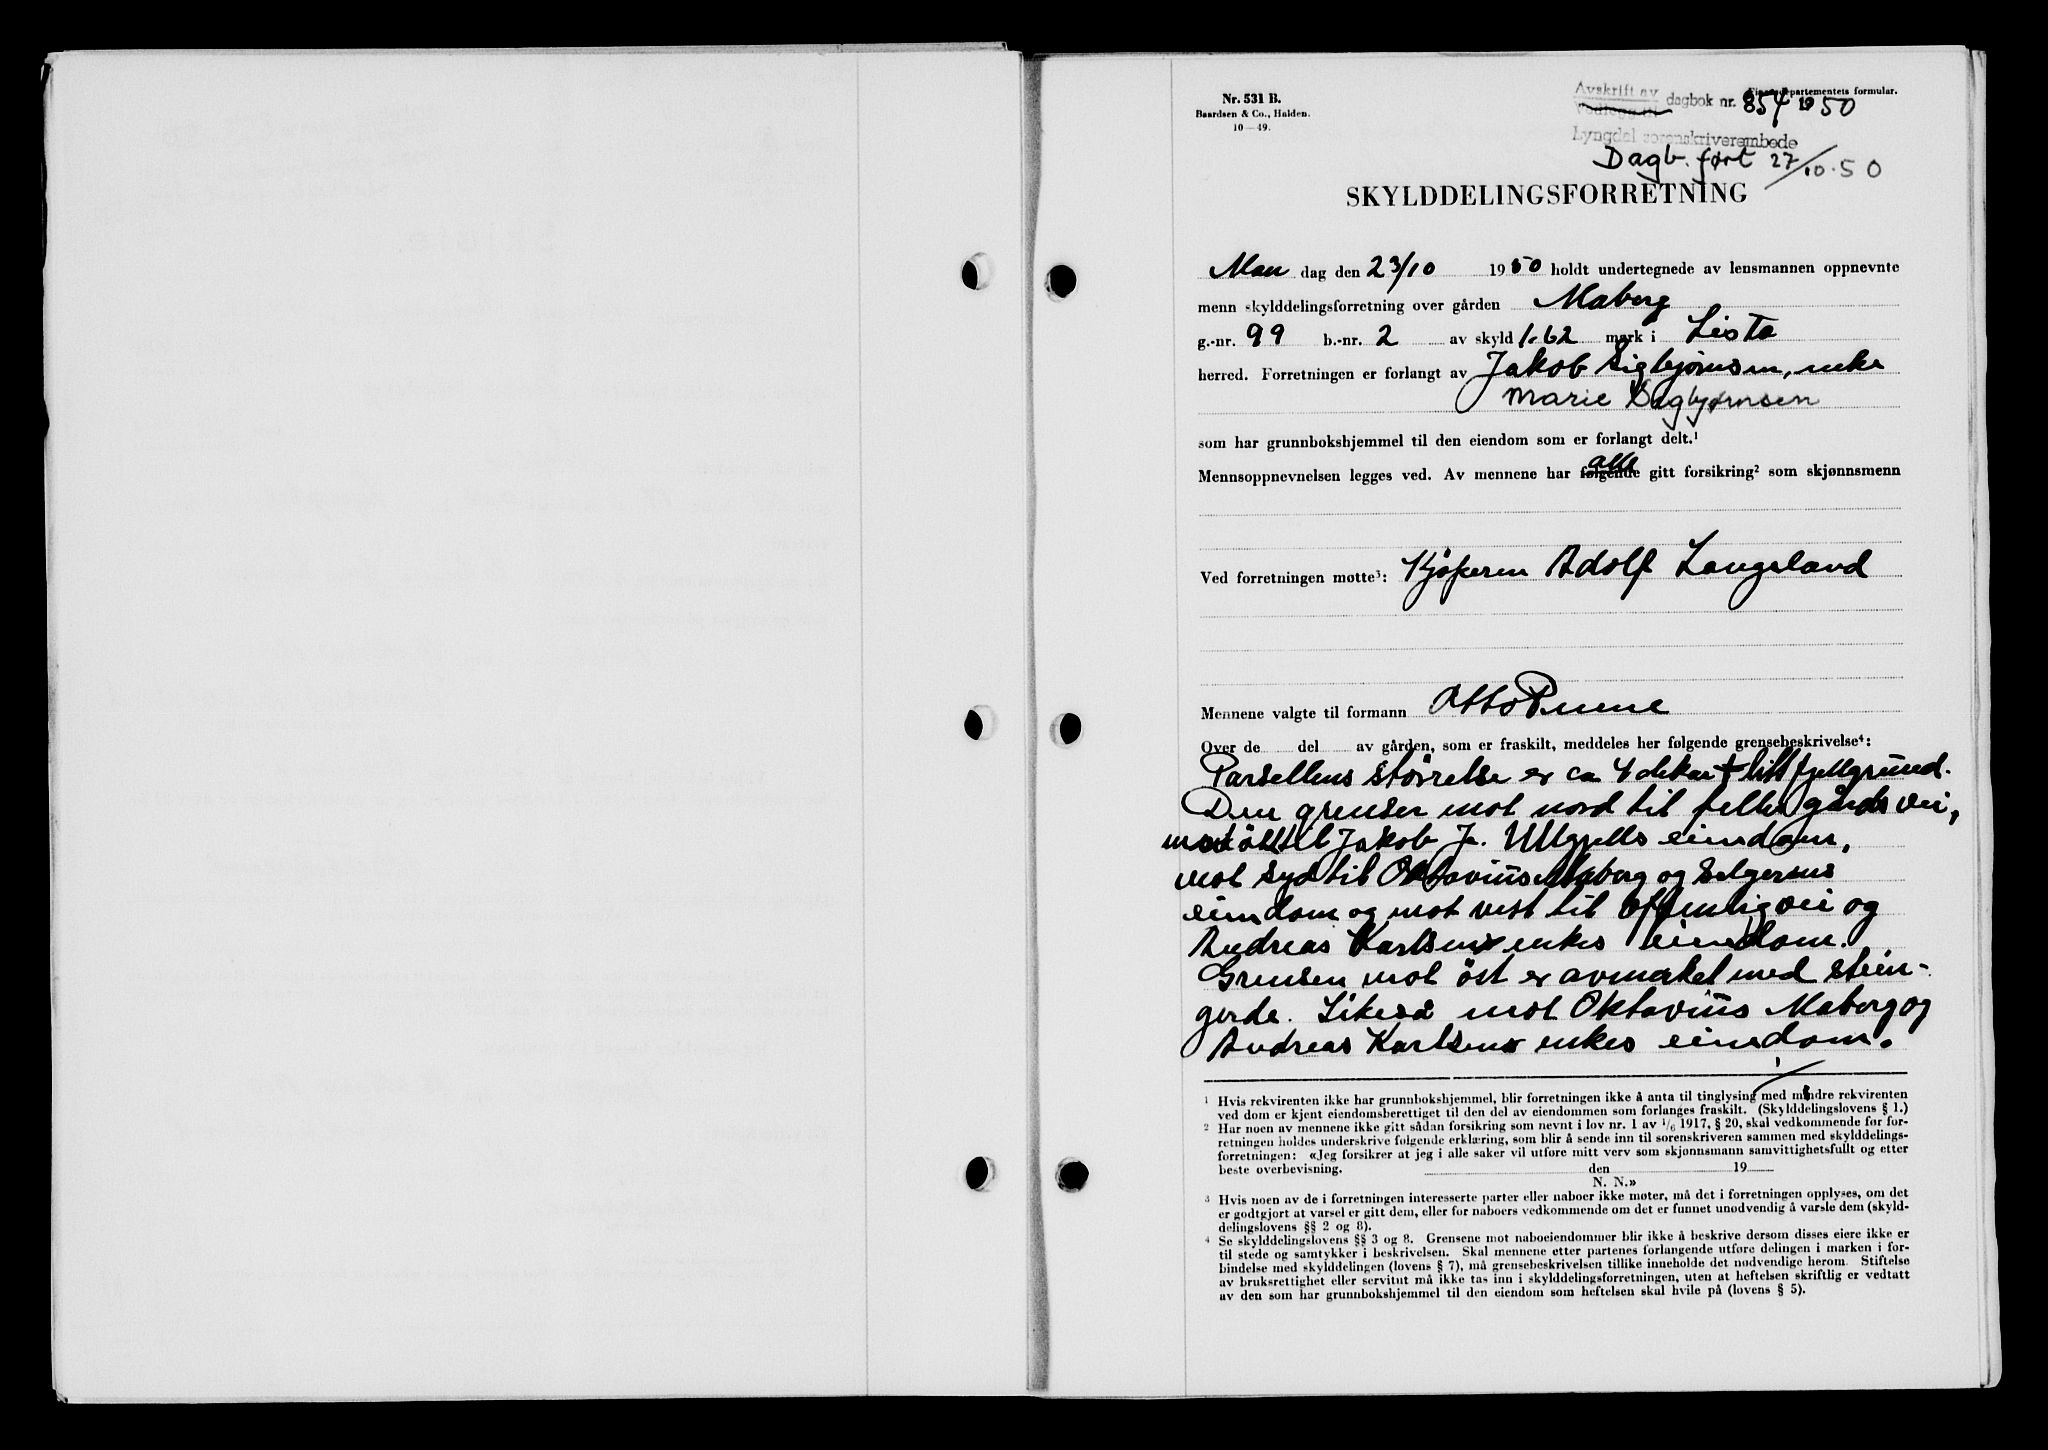 Nr. 531 B.
Baardsen & Co., Halden.
10—49.
Finansdepartementets formular.
Avskrift av
Vedlegg til dagbok nr. 854 1950
Lyngdal sorenskriverembede
Dagb. ført 27/10.50
SKYLDDELINGSFORRETNING
Man dag den 23/10 1950 holdt undertegnede av lensmannen oppnevnte
menn skylddelingsforretning over gården Maberg
g.-nr. 99 b.-nr. 2 av skyld 1.62 mark i Lista
herred. Forretningen er forlangt av Jakob Sigbjørnsen, enke
Marie Sigbjørnsen
som har grunnbokshjemmel til den eiendom som er forlangt delt.¹
alle
Mennsoppnevnelsen legges ved. Av mennene har følgende gitt forsikring² som skjønnsmenn
Ved forretningen møtte³: Kjøperen Adolf Langeland
Mennene valgte til formann Otto
Over de del av gården, som er fraskilt, meddeles her følgende grensebeskrivelse⁴:
Parsellens størrelse er ca 4 dekar + litt fjellgrund.
Den grenser mot nord til felles gårdsvei,
mot öst til Jakob J. Ulgjells eiendom,
mot syd til Oktavius Maberg og Selgerens
eiendom og mot vest til offentlig vei og
Andreas Karlsens enkes eiendom.
Grensen mot öst er avmerket med stein-
gerde. Likeså mot Oktavius Maberg og
Andreas Karlsens enkes eiendom.
¹ Hvis rekvirenten ikke har grunnbokshjemmel, blir forretningen ikke å anta til tinglysing med mindre rekvirenten
ved dom er kjent eiendomsberettiget til den del av eiendommen som forlanges fraskilt. (Skylddelingslovens § 1.)
² Har noen av mennene ikke gitt sådan forsikring som nevnt i lov nr. 1 av 1/6 1917, § 20, skal vedkommende før for-
retningen holdes underskrive følgende erklæring, som blir å sende inn til sorenskriveren sammen med skylddelings-
forretningen: «Jeg forsikrer at jeg i alle saker vil utføre mitt verv som skjønnsmann samvittighetsfullt og etter
beste overbevisning. den 19
N. N.»
³ Hvis noen av de i forretningen interesserte parter eller naboer ikke møter, må det i forretningen opplyses, om det
er godtgjort at varsel er gitt dem, eller for naboers vedkommende om det er funnet unødvendig å varsle dem (skyld-
delingslovens §§ 2 og 8).
⁴ Se skylddelingslovens §§ 3 og 8. Grensene mot naboeiendommer blir ikke å beskrive dersom disses eiere ikke er
til stede og samtykker i beskrivelsen. Skal mennene etter partenes forlangende utføre delingen i marken i for-
bindelse med skylddelingen (lovens § 7), må grensebeskrivelsen tillike inneholde det nødvendige herom. Stiftelse
av bruksrettighet eller servitut må ikke tas inn i skylddelingsforretningen, uten at heftelsen skriftlig er vedtatt
av den som har grunnbokshjemmel til den eiendom som heftelsen skal hvile på (lovens § 5).